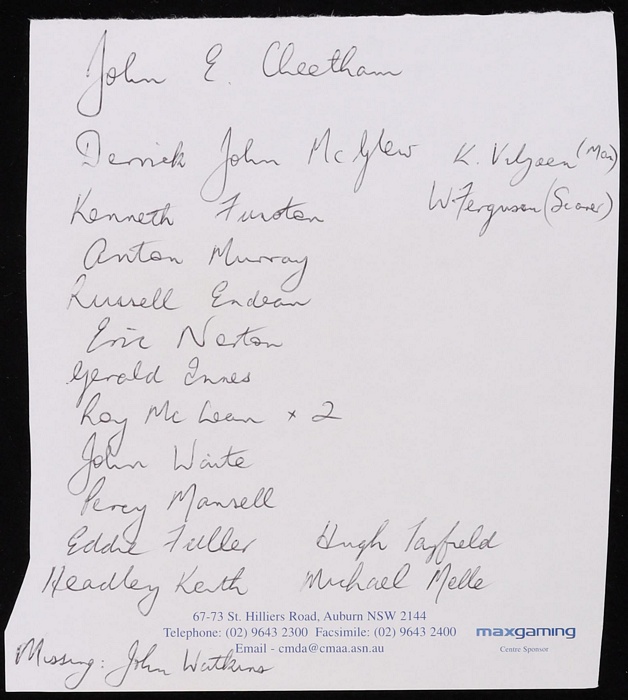 John E. Cheetham
Derrick John McGlew K. Viljoen (Man)
Kenneth Funston W. Ferguson (Scorer)
Anton Murray
Russell Endean
Eric Norton
Gerald Innes
Roy McLean x 2
John Waite
Percy Mansell
Eddie Fuller Hugh Tayfield
Headley Keith Michael Melle
67-73 St. Hilliers Road, Auburn NSW 2144
Telephone: (02) 9643 2300 Facsimile: (02) 9643 2400
Email - cmda@cmaa.asn.au
maxgaming
Centre Sponsor
Missing: John Watkins